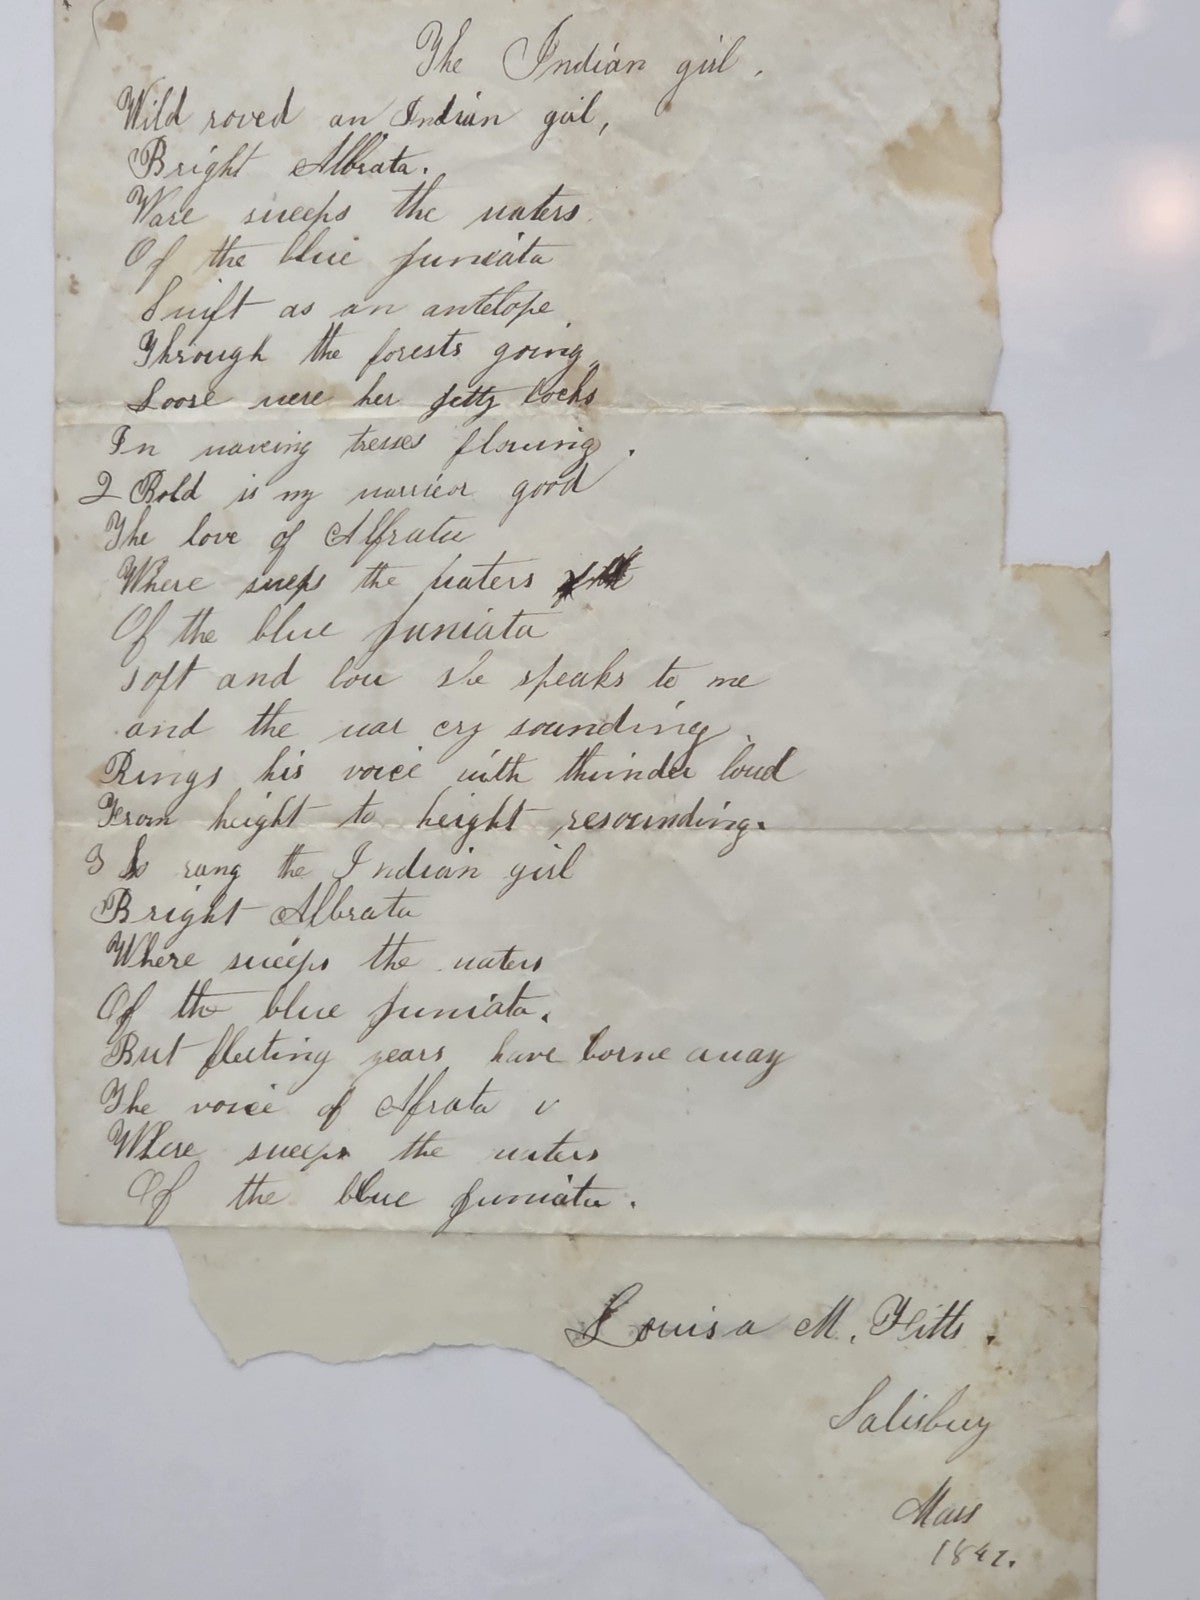 The Indian girl.
Wild roved an Indian girl,
Bright Albrata.
Ware sweeps the waters
Of the blue juniata
Swift as an antelope
Through the forests going
Loose were her jetty locks
In waveing tresses flowing.
2 Bold is my warrior good
The love of Alfrata
Where sweps the waters
Of the blue juniata
soft and low she speaks to me
and the war cry sounding
Rings his voice with thunder loud
From height to height resounding.
3 So sang the Indian girl
Bright Albrata
Where sweeps the waters
Of the blue juniata.
But fleeting years have borne away
The voice of Alfrata
Where sweeps the waters
Of the blue juniata.
Louisa M. Fitts.
Salisbury
Mass